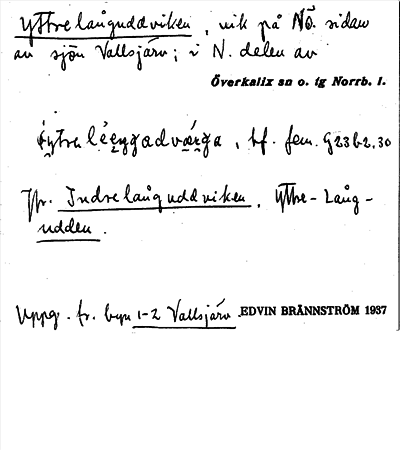 Yttrelånguddviken, vik på NÖ. sidan
av sjön Vallsjärv; i N. delen av
Överkalix sn o. tg Norrb. l.
bf. fem. G23b2,30
Jfr. Indrelånguddviken. Yttre-Lång-
udden.
Uppg. fr. byn 1-2 Vallsjärv. EDVIN BRÄNNSTRÖM 1937